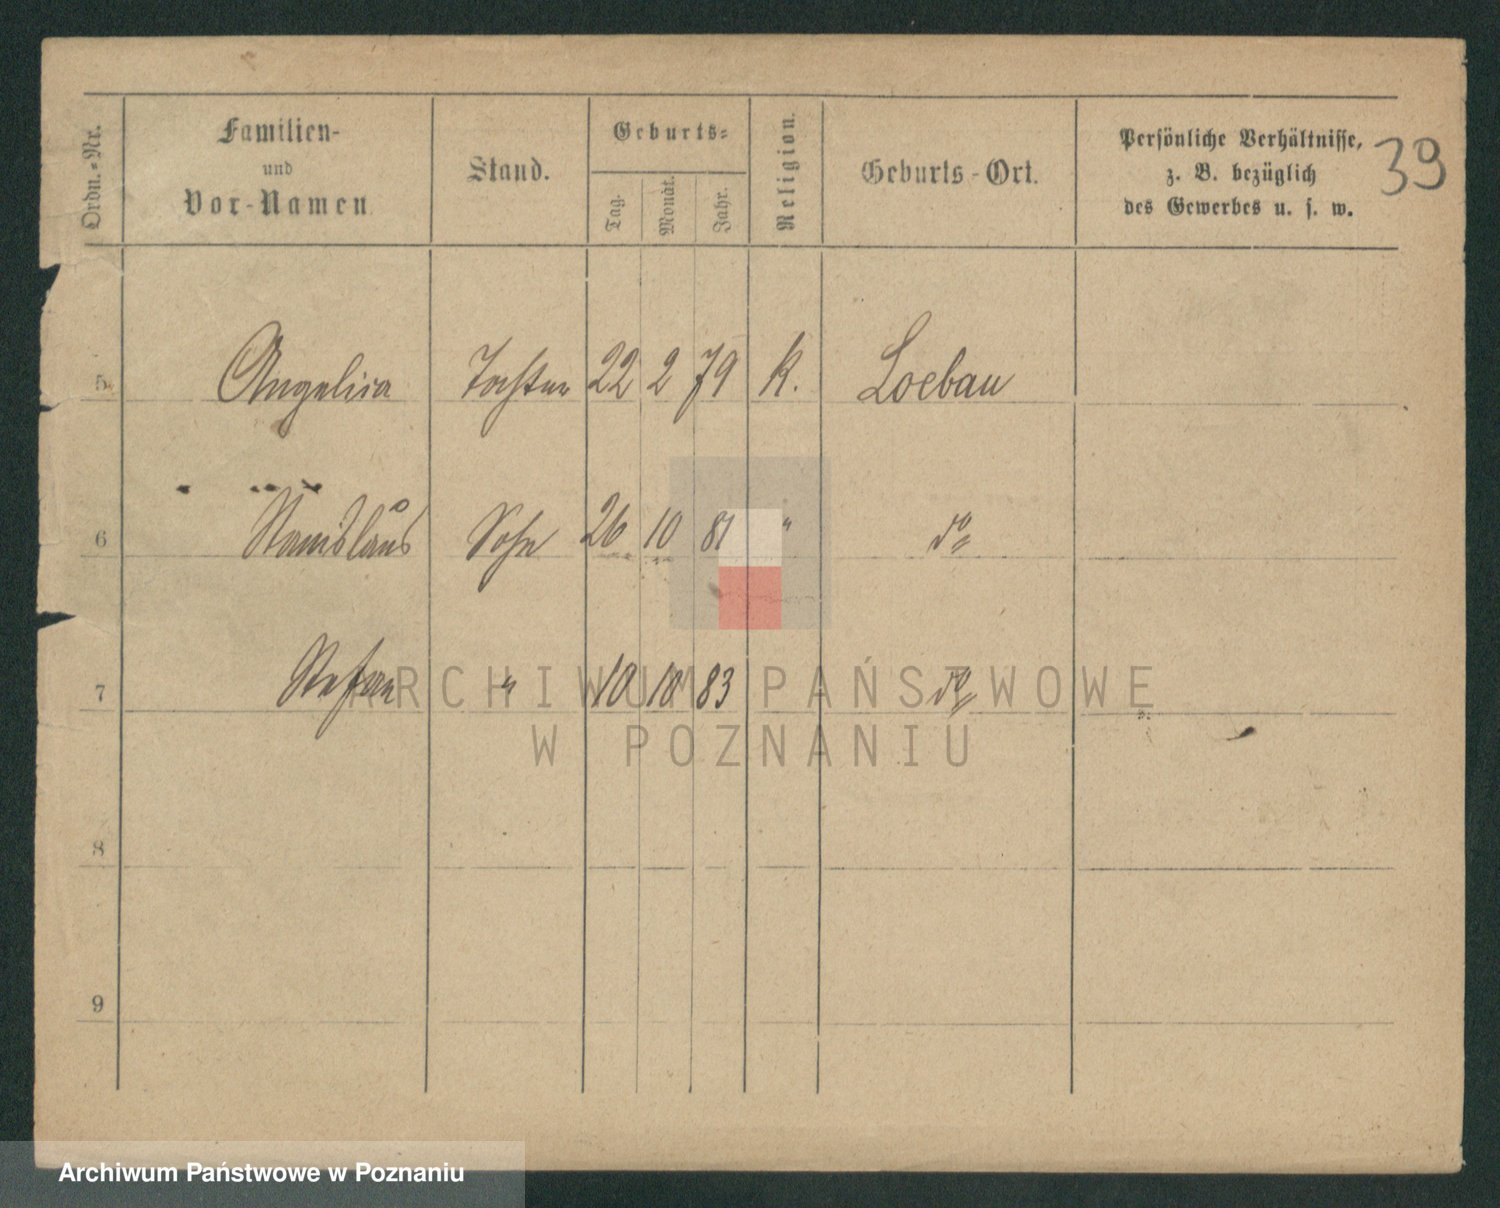 Ordn.-Nr.
Familien-
und
Vor-Namen
Stand.
Geburts-
Tag.
Monat.
Jahr.
Religion.
Geburts-Ort.
Persönliche Verhältnisse,
z. B. bezüglich
des Gewerbes u. s. w.
39
5 Angelica Tochter 22 2 79 K. Loebau
6 Stanislaus Sohn 26 10 81 " do
7 Stefan " 10 18 83 do
8
9
ARCHIWUM PAŃSTWOWE
W POZNANIU
Archiwum Państwowe w Poznaniu